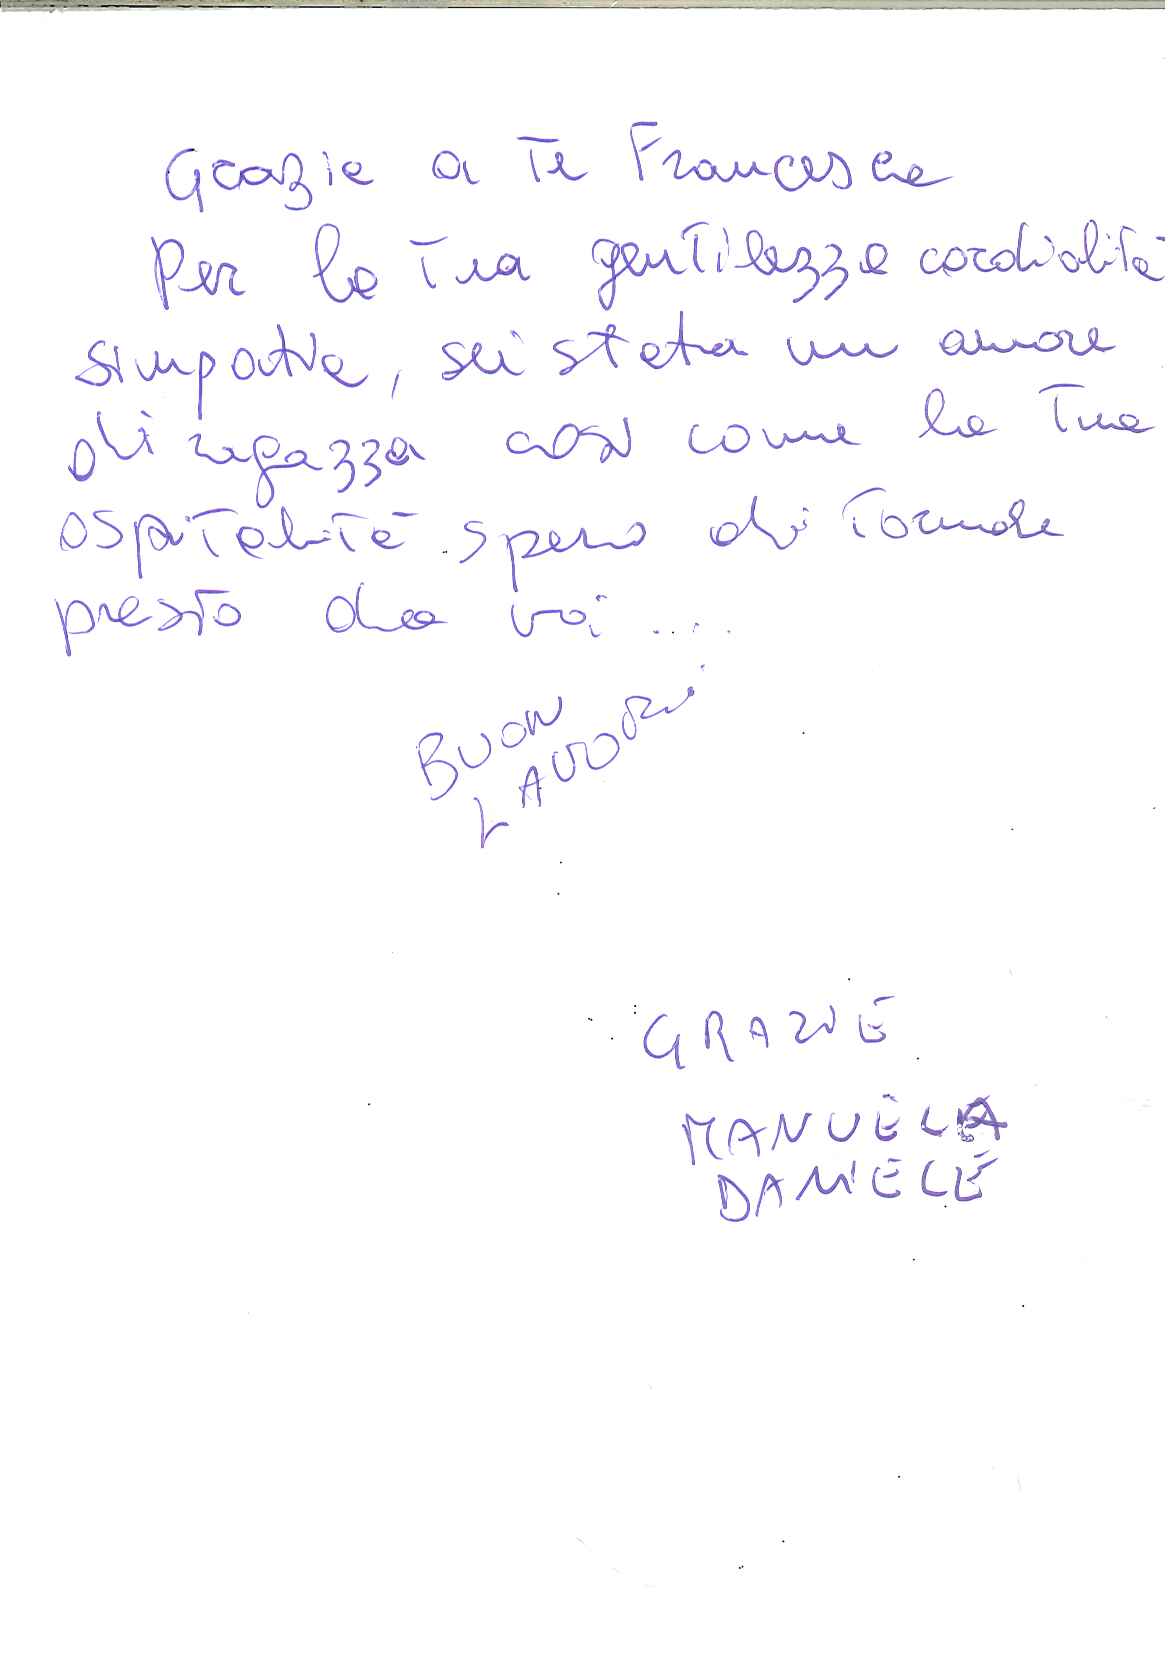 Grazie a te Francesca
Per la tua gentilezza cordialità
simpatia, sei stata un amore
di ragazza così come la tua
ospitalità. spero di tornare
presto da voi ....
BUON
LAVORO
GRAZIE
MANUELA
DANIELE